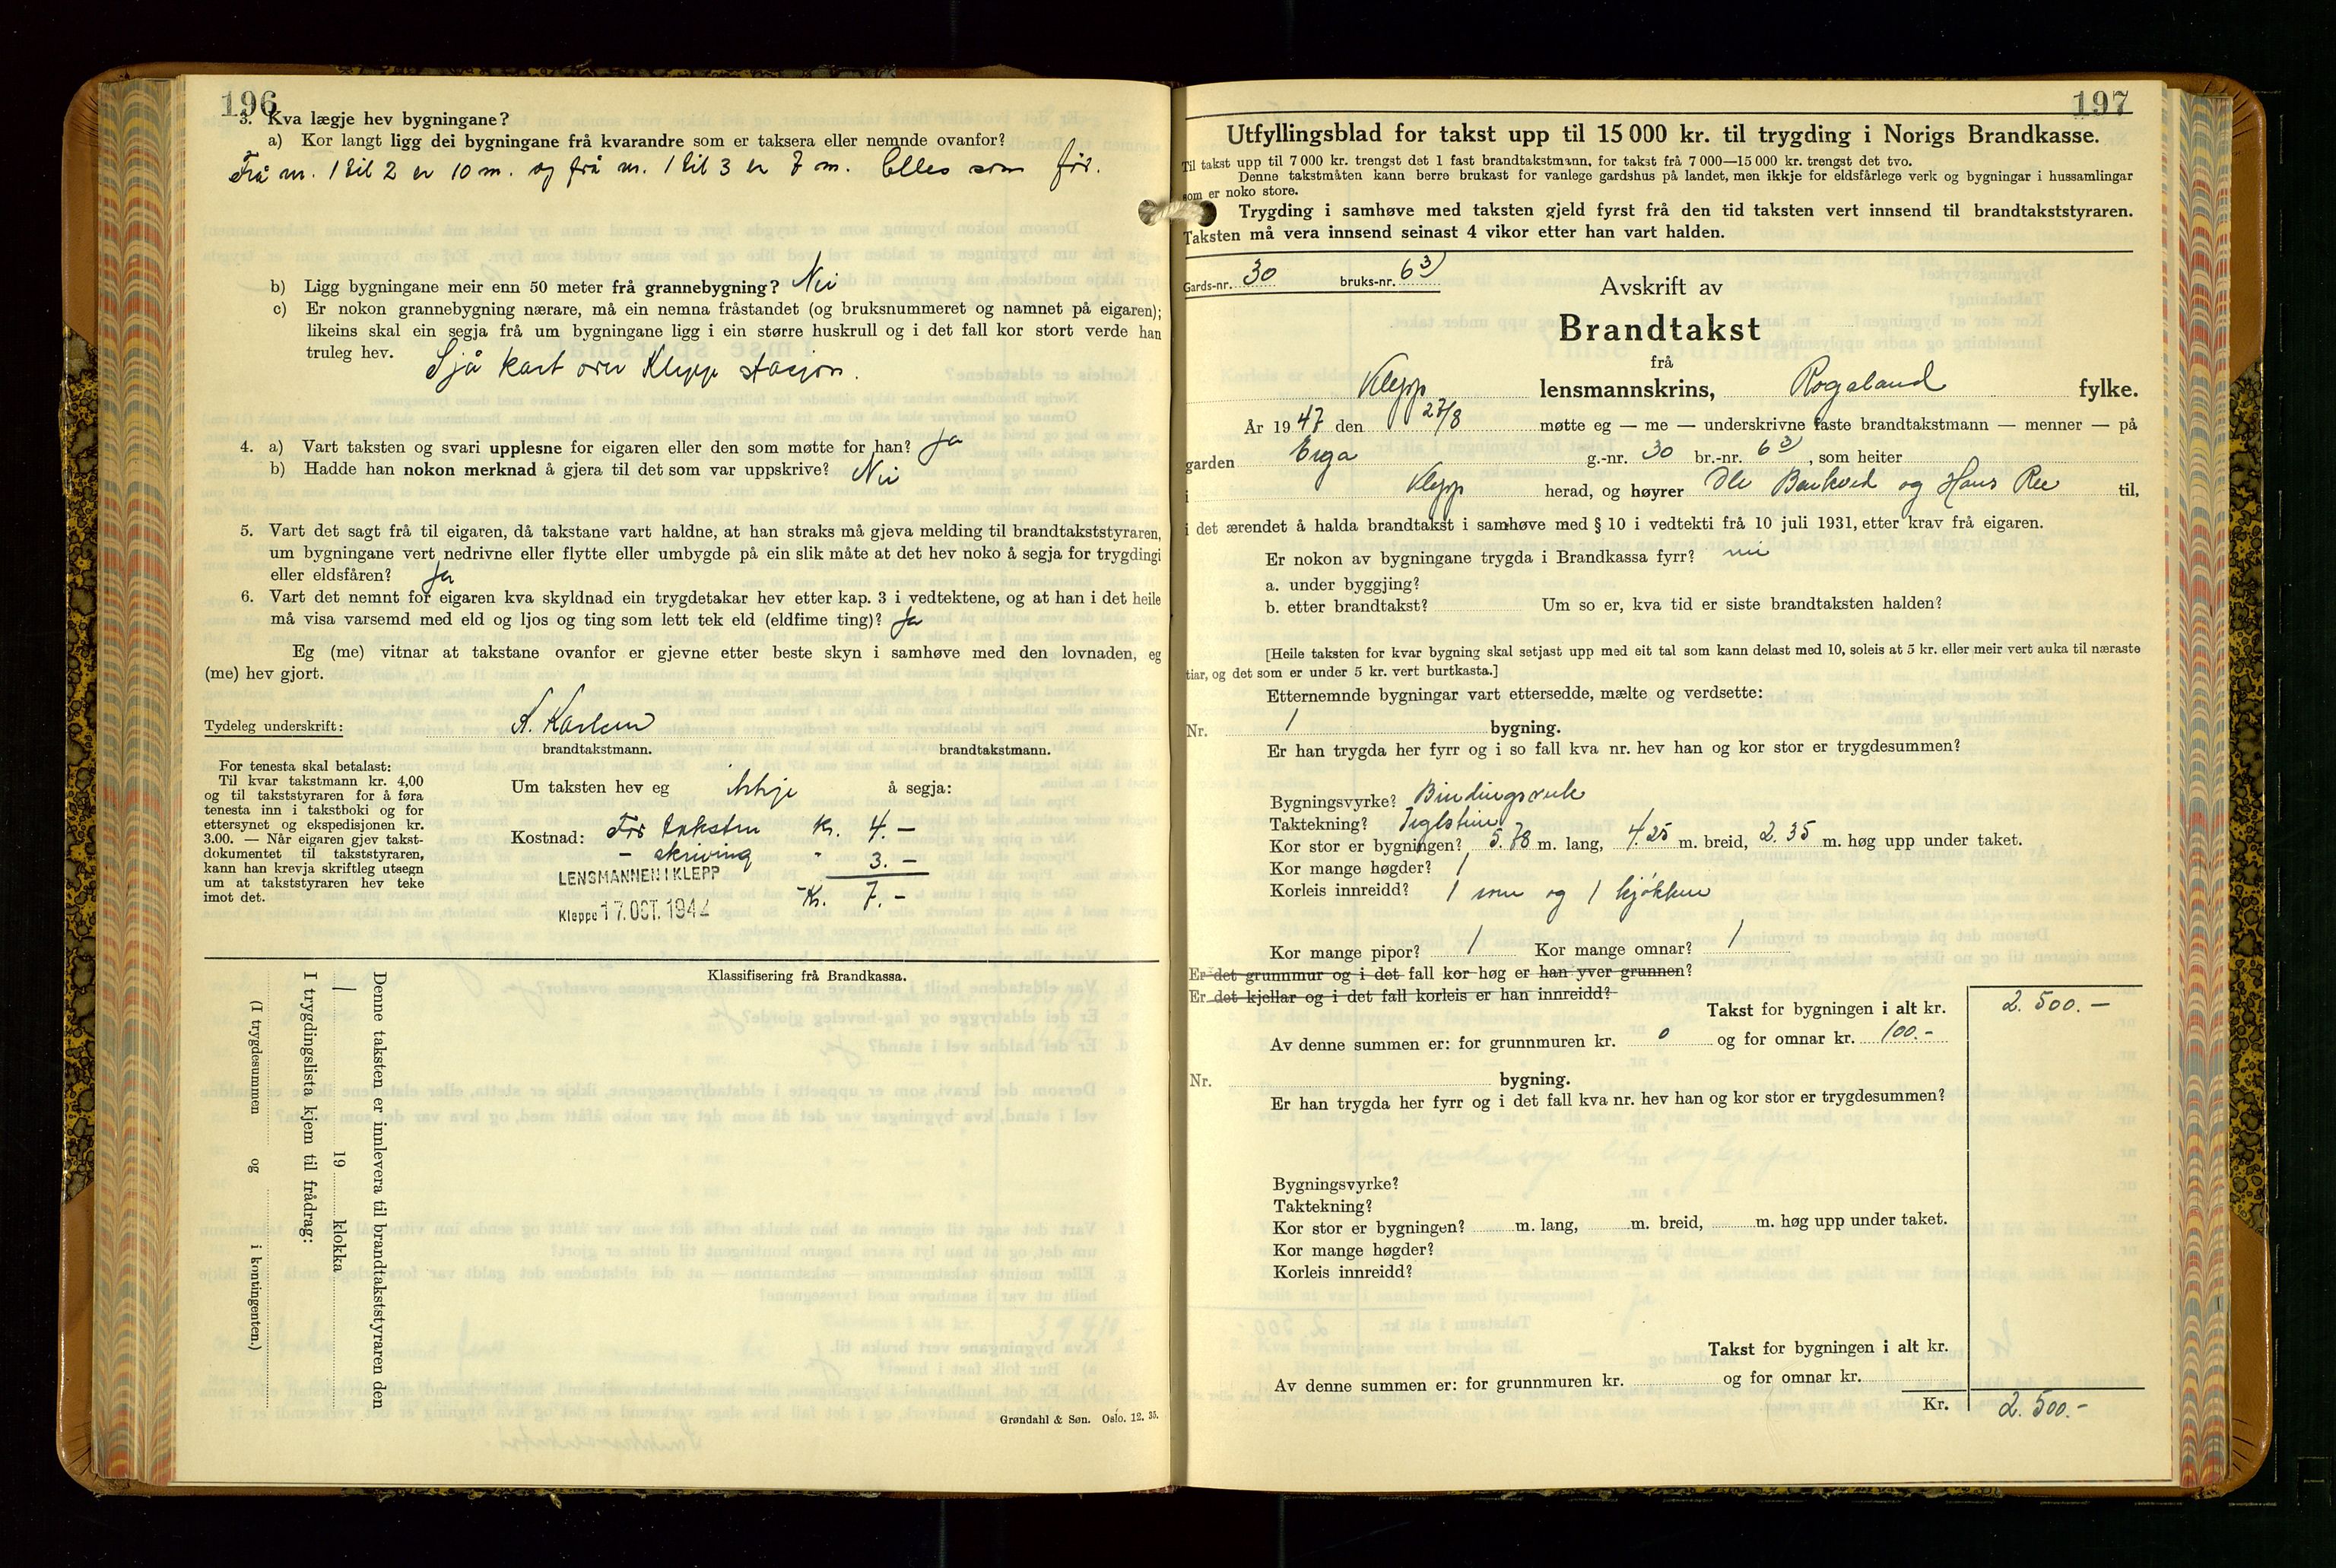 196
3. Kva lægje hev bygningane?
a) Kor langt ligg dei bygningane frå kvarandre som er taksera eller nemnde ovanfor?
Frå nr. 1 til 2 er 10 m. og frå nr. 1 til 3 er 7 m. Elles som før.
b) Ligg bygningane meir enn 50 meter frå grannebygning? Nei
c) Er nokon grannebygning nærare, må ein nemna fråstandet (og bruksnummeret og namnet på eigaren);
likeins skal ein segja frå um bygningane ligg i ein større huskrull og i det fall kor stort verde han
truleg hev. Sjå kart over Klepp stasjon.
4. a) Vart taksten og svari upplesne for eigaren eller den som møtte for han? Ja
b) Hadde han nokon merknad å gjera til det som var uppskrive? Nei
5. Vart det sagt frå til eigaren, då takstane vart haldne, at han straks må gjeva melding til brandtakststyraren,
um bygningane vert nedrivne eller flytte eller umbygde på ein slik måte at det hev noko å segja for trygdingi
eller eldsfåren? Ja
6. Vart det nemnt for eigaren kva skyldnad ein trygdetakar hev etter kap. 3 i vedtektene, og at han i det heile
må visa varsemd med eld og ljos og ting som lett tek eld (eldfime ting)? Ja
Eg (me) vitnar at takstane ovanfor er gjevne etter beste skyn i samhøve med den lovnaden, eg
(me) hev gjort.
Tydeleg underskrift: A. Karlsen
brandtakstmann. brandtakstmann.
For tenesta skal betalast:
Til kvar takstmann kr. 4,00
og til takststyraren for å føra
tenesta inn i takstboki og for
ettersynet og ekspedisjonen kr.
3.00. — Når eigaren gjev takst-
dokumentet til takststyraren,
kann han krevja skriftleg utsegn
um at takststyraren hev teke
imot det.
Um taksten hev eg ikkje å segja:
Kostnad: For taksten kr. 4.-
- skriving " 3.-
LENSMANNEN I KLEPP
Kr. 7.-
Kleppe 17. OCT. 1947
Klassifisering frå Brandkassa.
Denne taksten er innlevera til brandtakststyraren den
/ 19 klokka
I trygdingslista kjem til frådrag:
(I trygdesummen og i kontingenten.)
Grøndahl & Søn. Oslo. 12. 35.
197
Utfyllingsblad for takst upp til 15 000 kr. til trygding i Norigs Brandkasse.
Til takst upp til 7 000 kr. trengst det 1 fast brandtakstmann, for takst frå 7 000—15 000 kr. trengst det tvo.
Denne takstmåten kann berre brukast for vanlege gardshus på landet, men ikkje for eldsfårlege verk og bygningar i hussamlingar
som er noko store.
Trygding i samhøve med taksten gjeld fyrst frå den tid taksten vert innsend til brandtakststyraren.
Taksten må vera innsend seinast 4 vikor etter han vart halden.
Gards-nr. 30 bruks-nr. 63
Avskrift av
Brandtakst
frå
Klepp lensmannskrins, Rogaland fylke.
År 1947 den 27/8 møtte eg — me — underskrivne faste brandtakstmann — menner — på
garden Erga g.-nr. 30 br.-nr. 63, som heiter
i Klepp herad, og høyrer Ole Bankved og Hans Ree til,
i det ærendet å halda brandtakst i samhøve med § 10 i vedtekti frå 10 juli 1931, etter krav frå eigaren.
Er nokon av bygningane trygda i Brandkassa fyrr? nei
a. under byggjing?
b. etter brandtakst? Um so er, kva tid er siste brandtaksten halden?
[Heile taksten for kvar bygning skal setjast upp med eit tal som kann delast med 10, soleis at 5 kr. eller meir vert auka til næraste
tiar, og det som er under 5 kr. vert burtkasta.]
Etternemnde bygningar vart ettersedde, mælte og verdsette:
Nr. 1 bygning.
Er han trygda her fyrr og i so fall kva nr. hev han og kor stor er trygdesummen?
Bygningsvyrke? Bindingsverk
Taktekning? Teglstein
Kor stor er bygningen? 5.78 m. lang, 4.25 m. breid, 2.35 m. høg upp under taket.
Kor mange høgder? 1
Korleis innreidd? 1 rom og 1 kjøkken
Kor mange pipor? 1 Kor mange omnar? 1
Er det grunnmur og i det fall kor høg er han yver grunnen?
Er det kjellar og i det fall korleis er han innreidd?
Takst for bygningen i alt kr. 2.500.-
Av denne summen er: for grunnmuren kr. 0 og for omnar kr. 100.-
Nr. bygning.
Er han trygda her fyrr og i det fall kva nr. hev han og kor stor er trygdesummen?
Bygningsvyrke?
Taktekning?
Kor stor er bygningen? m. lang, m. breid, m. høg upp under taket.
Kor mange høgder?
Korleis innreidd?
Takst for bygningen i alt kr.
Av denne summen er: for grunnmuren kr. og for omnar kr.
Kr. 2.500.-